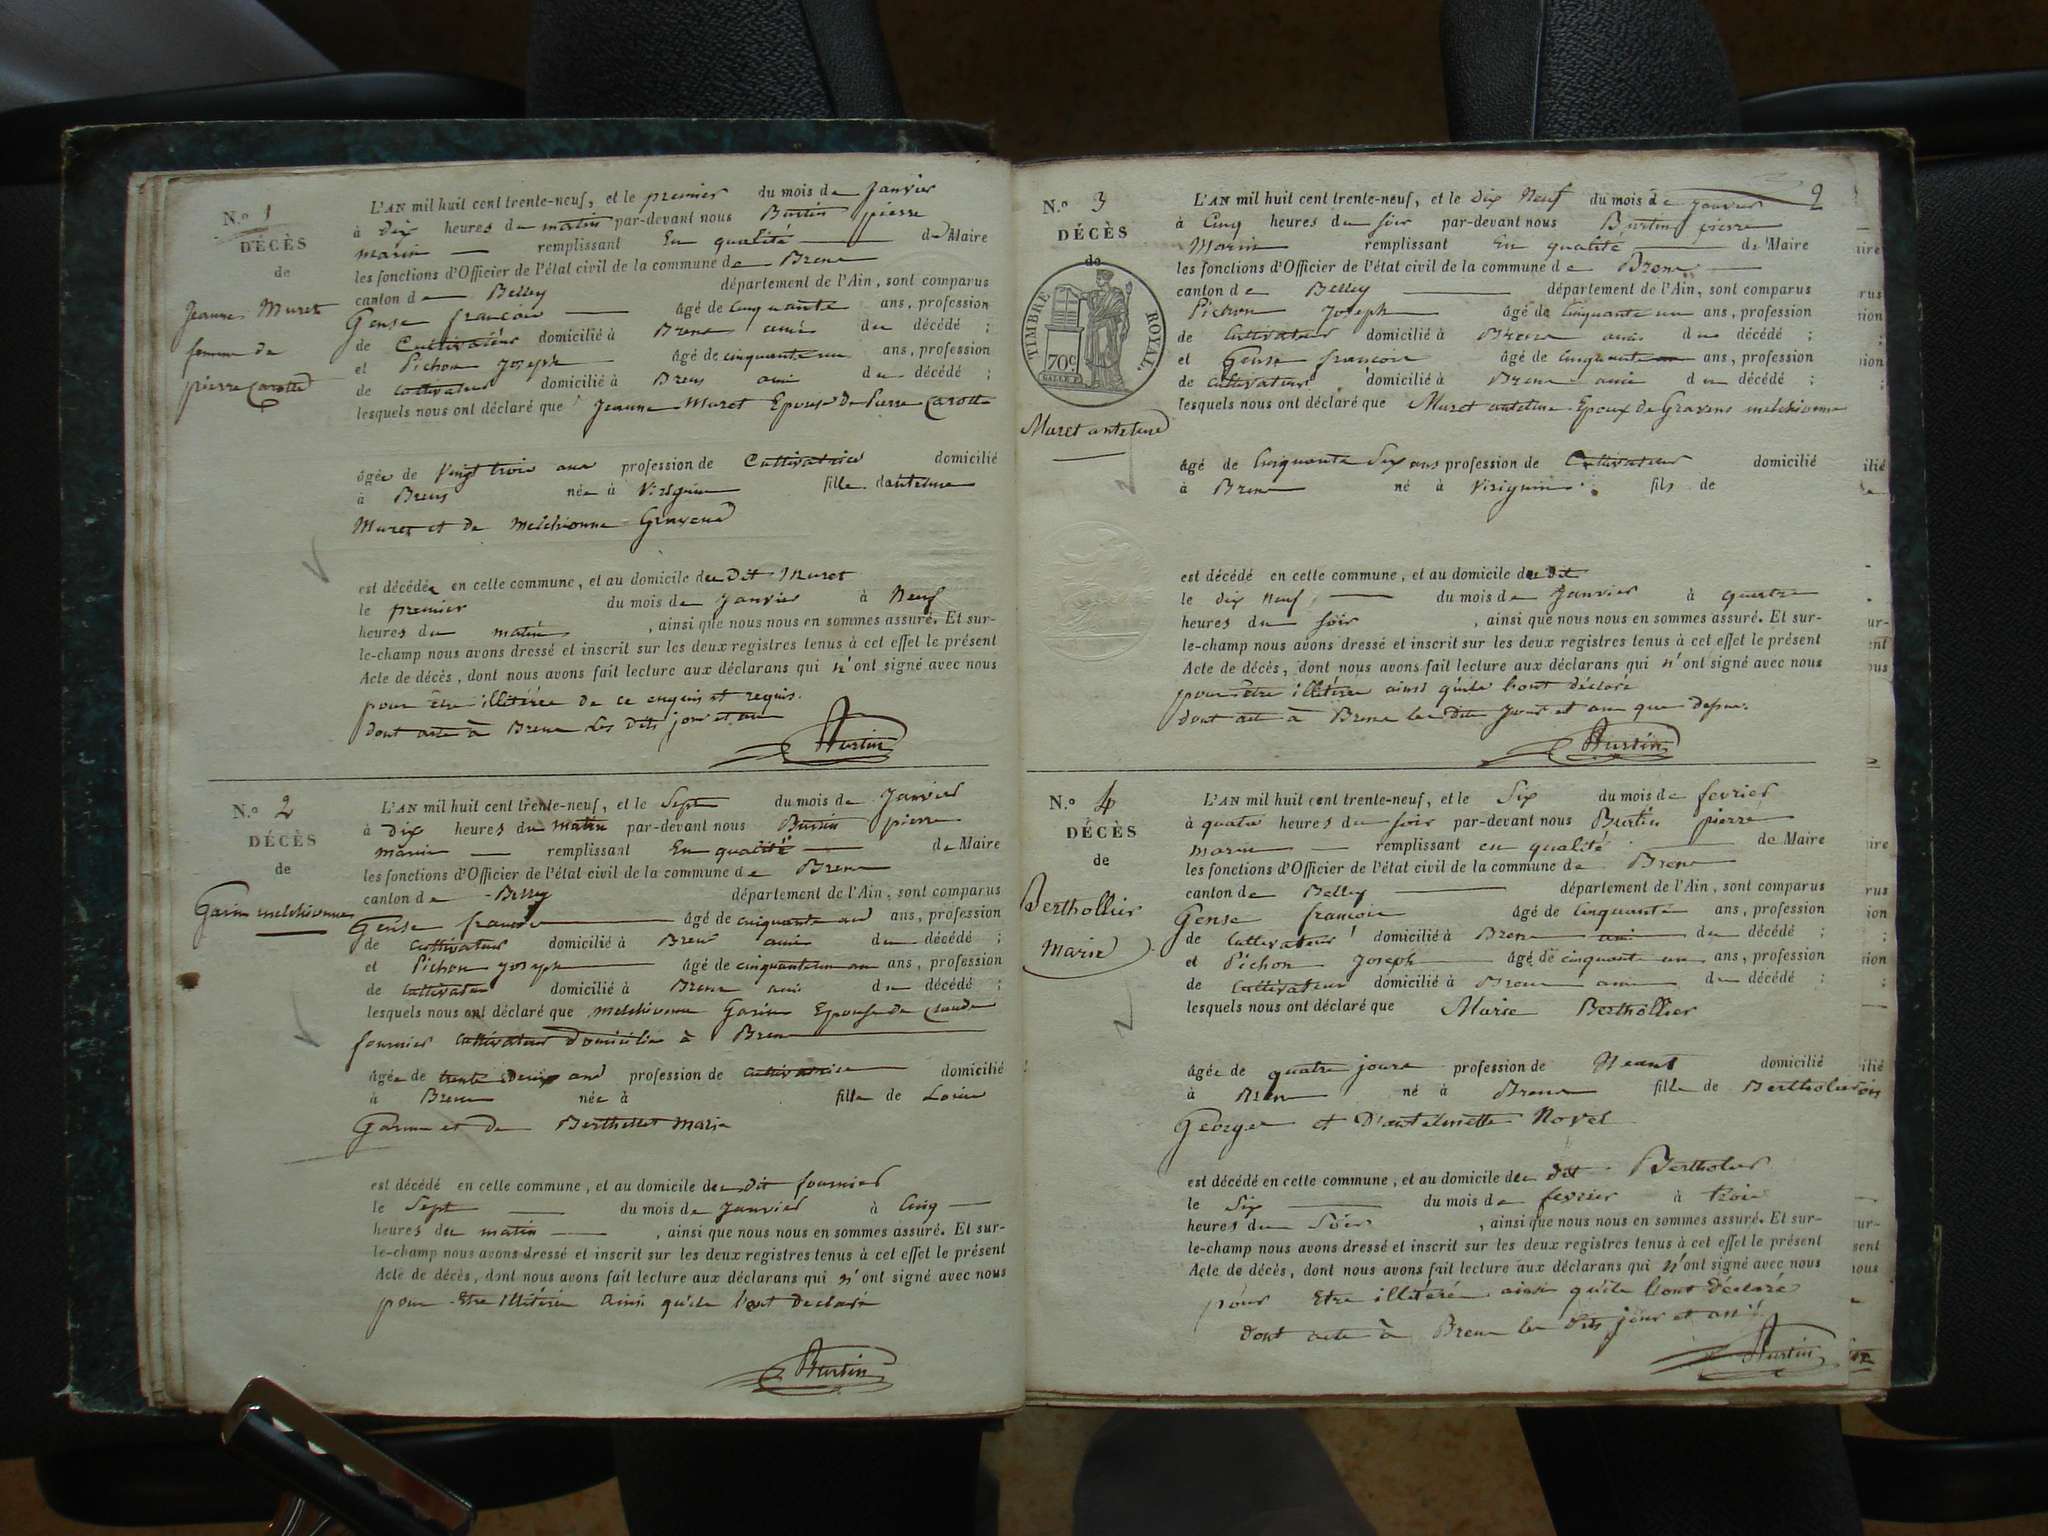 N.º 1
DÉCÈS
de
Jeanne Muret
femme de
pierre Carotte
L'AN mil huit cent trente-neuf, et le premier du mois de Janvier
à dix heures du matin par-devant nous Burtin pierre
marin remplissant En qualité de Maire
les fonctions d'Officier de l'état civil de la commune de Brens
canton de Belley département de l'Ain, sont comparus
Gense francois âgé de cinquante ans, profession
de Cultivateur domicilié à Brens ami du décédé ;
et Pichon Joseph âgé de cinquante un ans, profession
de cultivateur domicilié à Brens ami du décédé ;
lesquels nous ont déclaré que Jeanne Muret Epouse de Pierre Carotte
âgée de vingt trois ans profession de Cultivatrice domicilié
à Brens née à Virignin fille dantelme
Muret et de melchionne Gravend
est décédée en cette commune, et au domicile du Dit Muret
le premier du mois de Janvier à Neuf
heures du matin, ainsi que nous nous en sommes assuré. Et sur-
le-champ nous avons dressé et inscrit sur les deux registres tenus à cet effet le présent
Acte de décès, dont nous avons fait lecture aux déclarans qui n'ont signé avec nous
pour être illitérée de ce enquis et requis.
dont acte à Brens les Dits jour et an
Burtin
N.º 2
DÉCÈS
de
Garin melchionne
L'AN mil huit cent trente-neuf, et le Sept du mois de Janvier
à Dix heures du matin par-devant nous Burtin pierre
marin remplissant En qualité de Maire
les fonctions d'Officier de l'état civil de la commune de Brens
canton de Belley département de l'Ain, sont comparus
Gense francois âgé de cinquante ans, profession
de cultivateur domicilié à Brens ami du décédé ;
et Pichon Joseph âgé de cinquante un ans, profession
de cultivateur domicilié à Brens ami du décédé ;
lesquels nous ont déclaré que melchionne Garin Epouse de Claude
fournier cultivateur domicilié à Brens
âgée de trente deux ans profession de cultivatrice domicilié
à Brens née à fille de Louis
Garin et de Berthellet marie
est décédé en cette commune, et au domicile du dit fournier
le Sept du mois de Janvier à Cinq
heures du matin, ainsi que nous nous en sommes assuré. Et sur-
le-champ nous avons dressé et inscrit sur les deux registres tenus à cet effet le présent
Acte de décès, dont nous avons fait lecture aux déclarans qui n'ont signé avec nous
pour Etre illitérée ainsi qu'ils l'ont declaré
Burtin
2
N.º 3
DÉCÈS
de
TIMBRE ROYAL
70c
Muret antelme
L'AN mil huit cent trente-neuf, et le dix Neuf du mois de Janvier
à Cinq heures du soir par-devant nous Burtin pierre
Marin remplissant En qualité de Maire
les fonctions d'Officier de l'état civil de la commune de Brens
canton de Belley département de l'Ain, sont comparus
Pichon Joseph âgé de cinquante un ans, profession
de Cultivateur domicilié à Brens ami du décédé ;
et Gense francois âgé de cinquante ans, profession
de cultivateur domicilié à Brens ami du décédé ;
lesquels nous ont déclaré que Muret antelme Epoux de Gravend melchionne
âgé de Cinquante Six ans profession de Cultivateur domicilié
à Brens né à Virignin fils de
est décédé en cette commune, et au domicile du dit
le dix Neuf du mois de Janvier à quatre
heures du soir, ainsi que nous nous en sommes assuré. Et sur-
le-champ nous avons dressé et inscrit sur les deux registres tenus à cet effet le présent
Acte de décès, dont nous avons fait lecture aux déclarans qui n'ont signé avec nous
pour être illitérée ainsi qu'ils l'ont déclaré
dont acte à Brens les Dits Jour et an que dessus.
Burtin
N.º 4
DÉCÈS
de
Berthollier
Marie
L'AN mil huit cent trente-neuf, et le Six du mois de fevrier
à quatre heures du soir par-devant nous Burtin pierre
marin remplissant en qualité de Maire
les fonctions d'Officier de l'état civil de la commune de Brens
canton de Belley département de l'Ain, sont comparus
Gense francois âgé de Cinquante ans, profession
de Cultivateur domicilié à Brens ami du décédé ;
et Pichon Joseph âgé de cinquante un ans, profession
de Cultivateur domicilié à Brens ami du décédé ;
lesquels nous ont déclaré que Marie Berthollier
âgée de quatre jours profession de Neant domicilié
à Brens né à Brens fille de
Georges et D'antelmette Novel
est décédé en cette commune, et au domicile du dit Bertholier
le Six du mois de fevrier à trois
heures du Soir, ainsi que nous nous en sommes assuré. Et sur-
le-champ nous avons dressé et inscrit sur les deux registres tenus à cet effet le présent
Acte de décès, dont nous avons fait lecture aux déclarans qui n'ont signé avec nous
pour Etre illitérée ainsi qu'ils l'ont Déclaré
Dont acte à Brens les Dits jour et an
Burtin